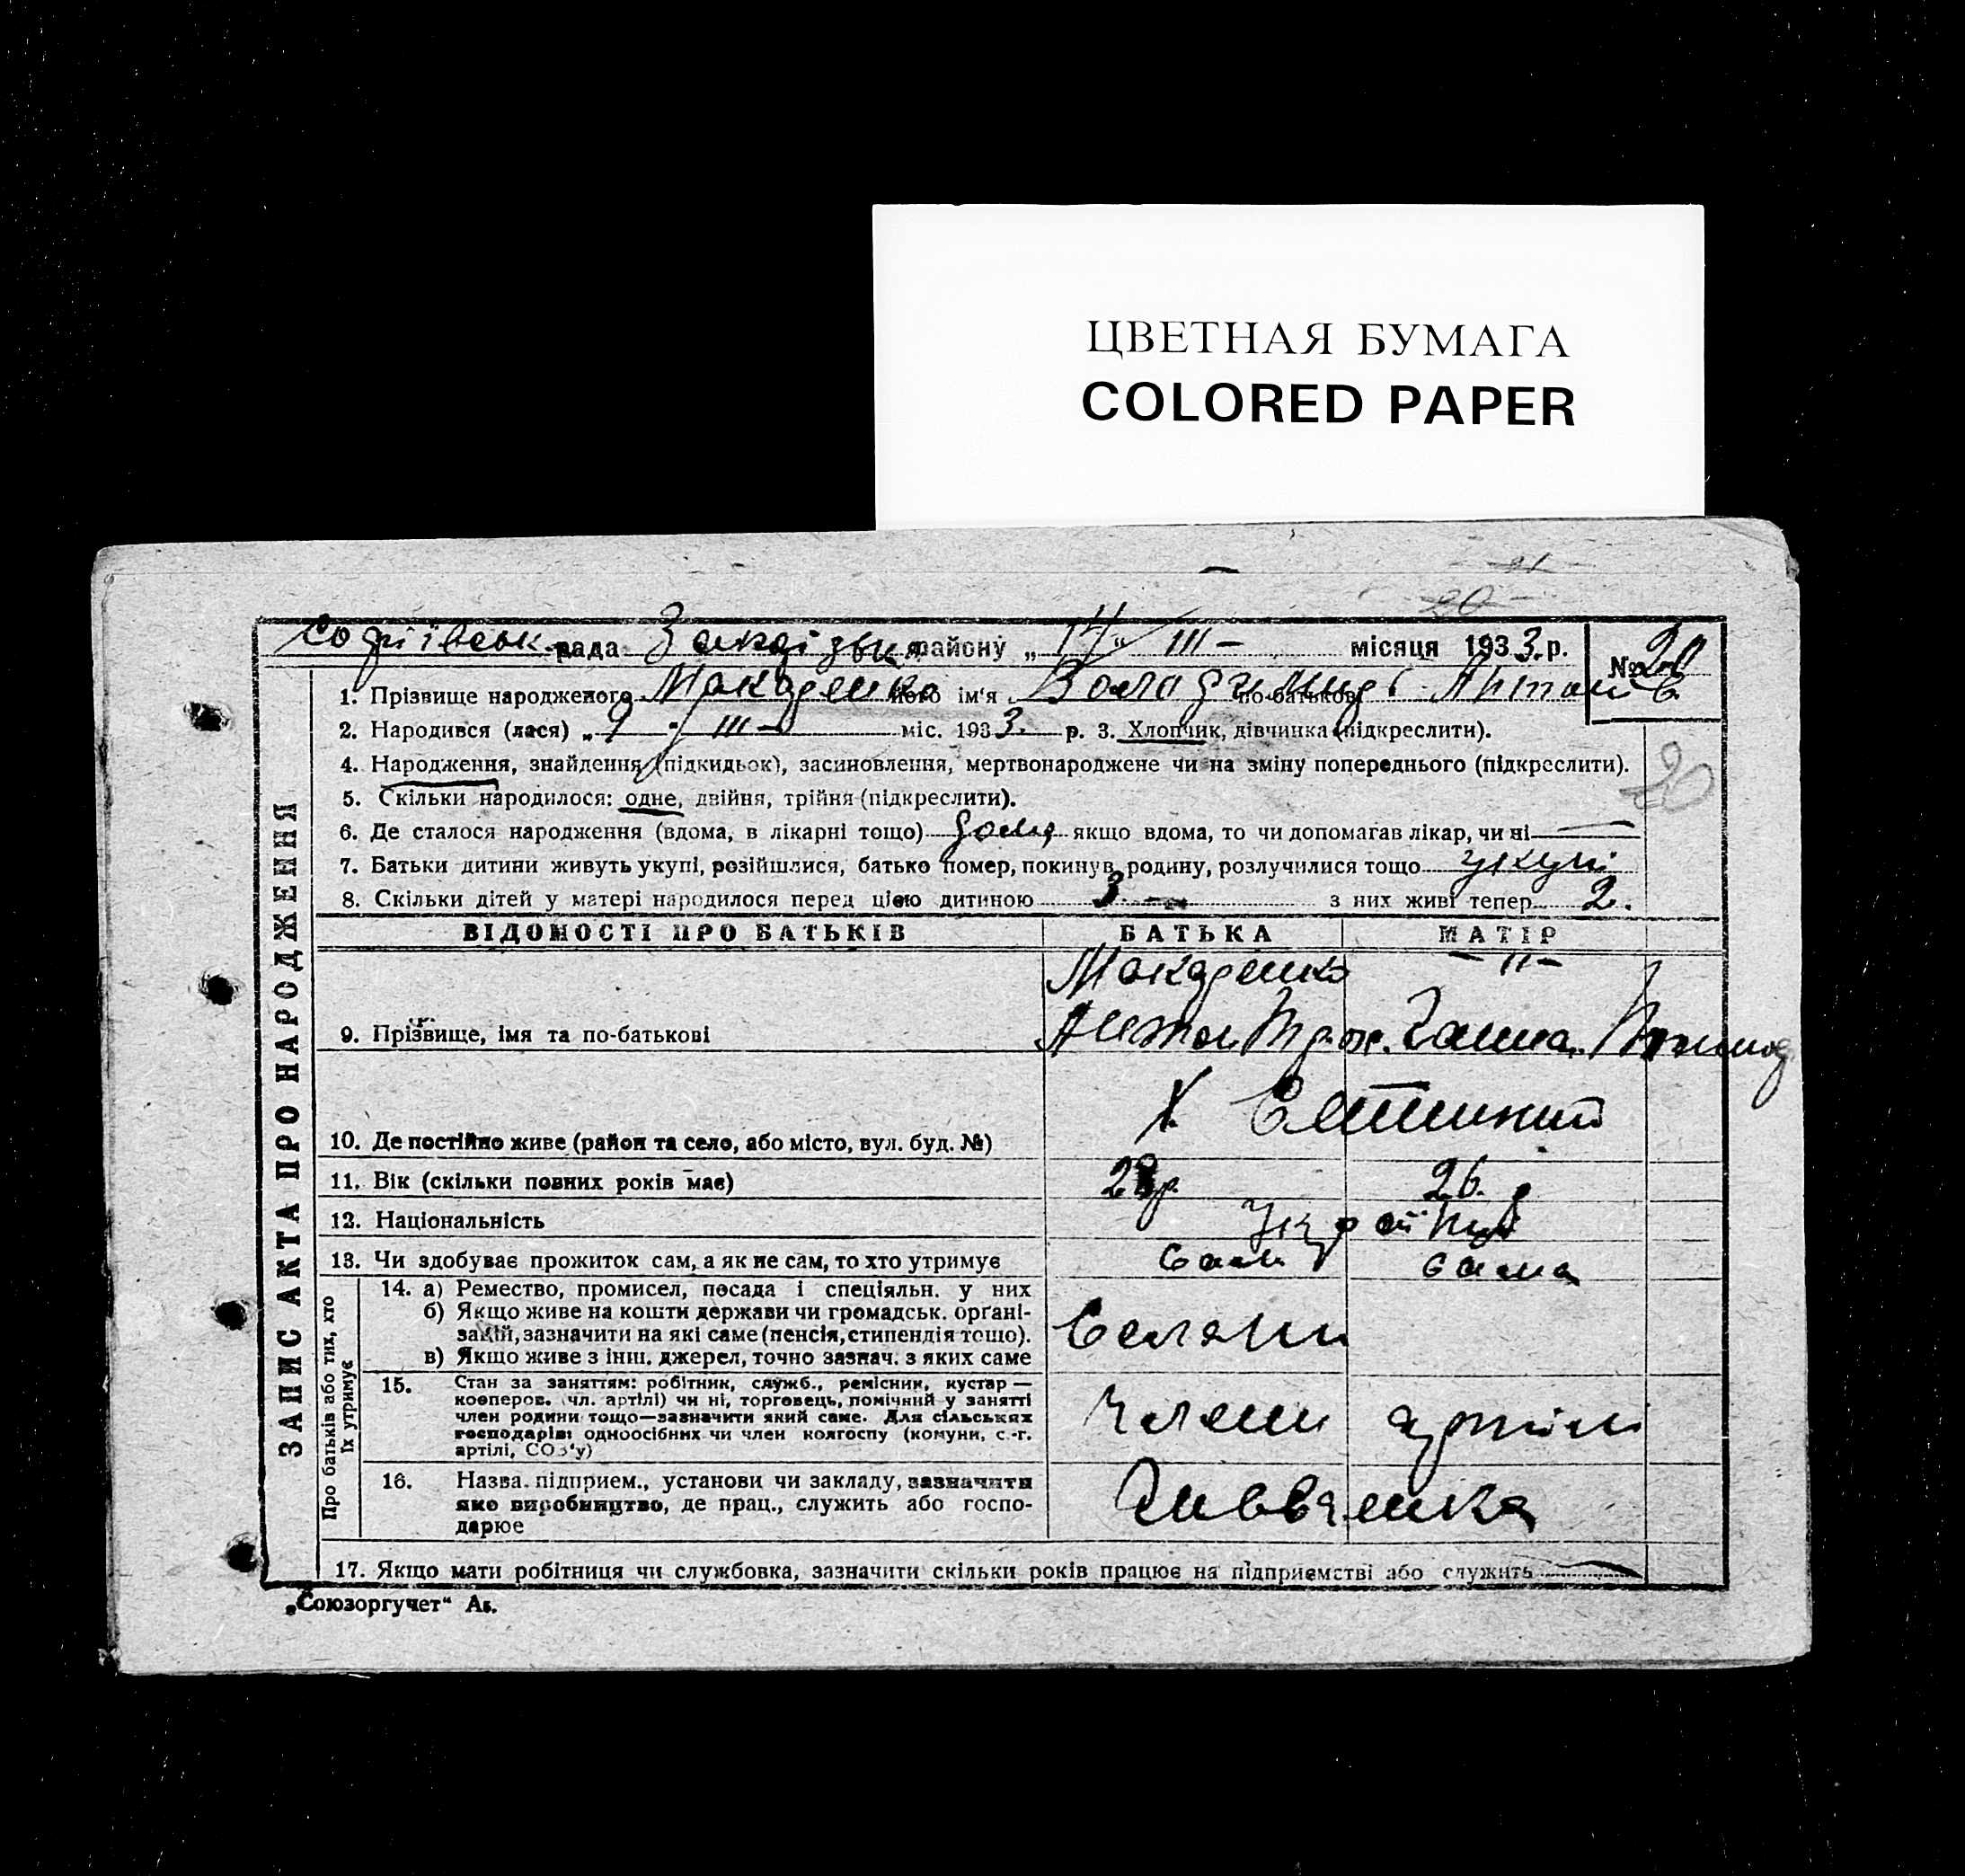 ЦВЕТНАЯ БУМАГА
COLORED PAPER
20
Софіївськ рада району „14“ III – місяця 1933.р. № 20
1. Прізвище народженого Макаренко його ім'я Володимир по-батькові Антонів
2. Народився (лася) „9“ III – міс. 1933. р. 3. Хлопчик, дівчинка (підкреслити).
4. Народження, знайдення (підкидьок), засиновлення, мертвонароджене чи на зміну попереднього (підкреслити).
20
5. Скільки народилося: одне, двійня, трійня (підкреслити).
6. Де сталося народження (вдома, в лікарні тощо) дома якщо вдома, то чи допомагав лікар, чи ні —
7. Батьки дитини живуть укупі, розійшлися, батько помер, покинув родину, розлучилися тощо укупі
8. Скільки дітей у матері народилося перед цією дитиною 3 з них живі тепер 2.
ЗАПИС АКТА ПРО НАРОДЖЕННЯ
ВІДОМОСТІ ПРО БАТЬКІВ БАТЬКА МАТІР
Макаренко – " –
9. Прізвище, імя та по-батькові Антон Ганна
10. Де постійно живе (район та село, або місто, вул. буд. №) Х.
11. Вік (скільки повних років має) 28р. 26. р
12. Національність Українці
13. Чи здобуває прожиток сам, а як не сам, то хто утримує сам сама
Про батьків або тих, хто їх утримує
14. а) Ремество, промисел, посада і спеціяльн. у них
б) Якщо живе на кошти держави чи громадськ. орґані-
зацій, зазначити на які саме (пенсія, стипендія тощо). Селяни
в) Якщо живе з інш. джерел, точно зазнач. з яких саме
15. Стан за заняттям: робітник, служб., ремісник, кустар —
кооперов. (чл. артілі) чи ні, торговець, помічний у занятті
член родини тощо—зазначити який саме. Для сільських Члени артілі
господарів: одноосібник чи член колгоспу (комуни, с.-г.
артілі, СОЗ'у)
16. Назва підприєм., установи чи закладу, зазначити
яке виробництво, де прац., служить або госпо-
дарює
17. Якщо мати робітниця чи службовка, зазначити скільки років працює на підприємстві або служить
„Союзоргучет“ Ак.